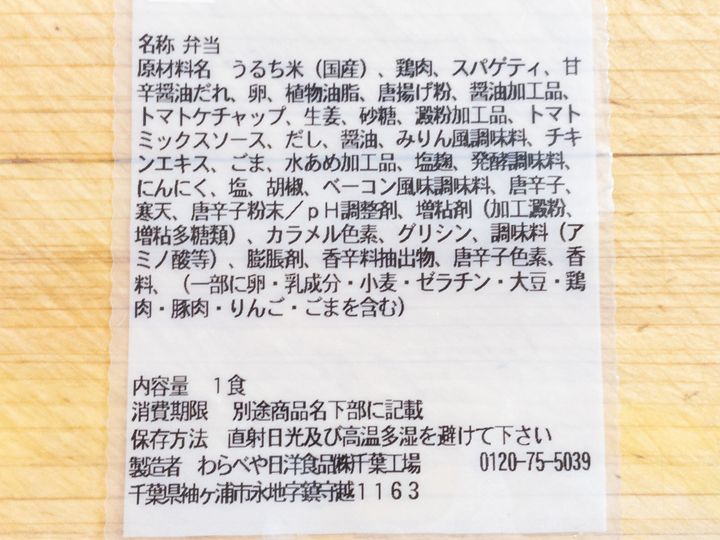 名称 弁当
原材料名　うるち米（国産）、鶏肉、スパゲティ、甘
辛醤油だれ、卵、植物油脂、唐揚げ粉、醤油加工品、
トマトケチャップ、生姜、砂糖、澱粉加工品、トマト
ミックスソース、だし、醤油、みりん風調味料、チキ
ンエキス、ごま、水あめ加工品、塩麹、発酵調味料、
にんにく、塩、胡椒、ベーコン風味調味料、唐辛子、
寒天、唐辛子粉末／ｐＨ調整剤、増粘剤（加工澱粉、
増粘多糖類）、カラメル色素、グリシン、調味料（ア
ミノ酸等）、膨脹剤、香辛料抽出物、唐辛子色素、香
料、（一部に卵・乳成分・小麦・ゼラチン・大豆・鶏
肉・豚肉・りんご・ごまを含む）
内容量　１食
消費期限　別途商品名下部に記載
保存方法　直射日光及び高温多湿を避けて下さい
製造者　わらべや日洋食品㈱千葉工場　0120-75-5039
千葉県袖ヶ浦市永地字鎮守越１１６３